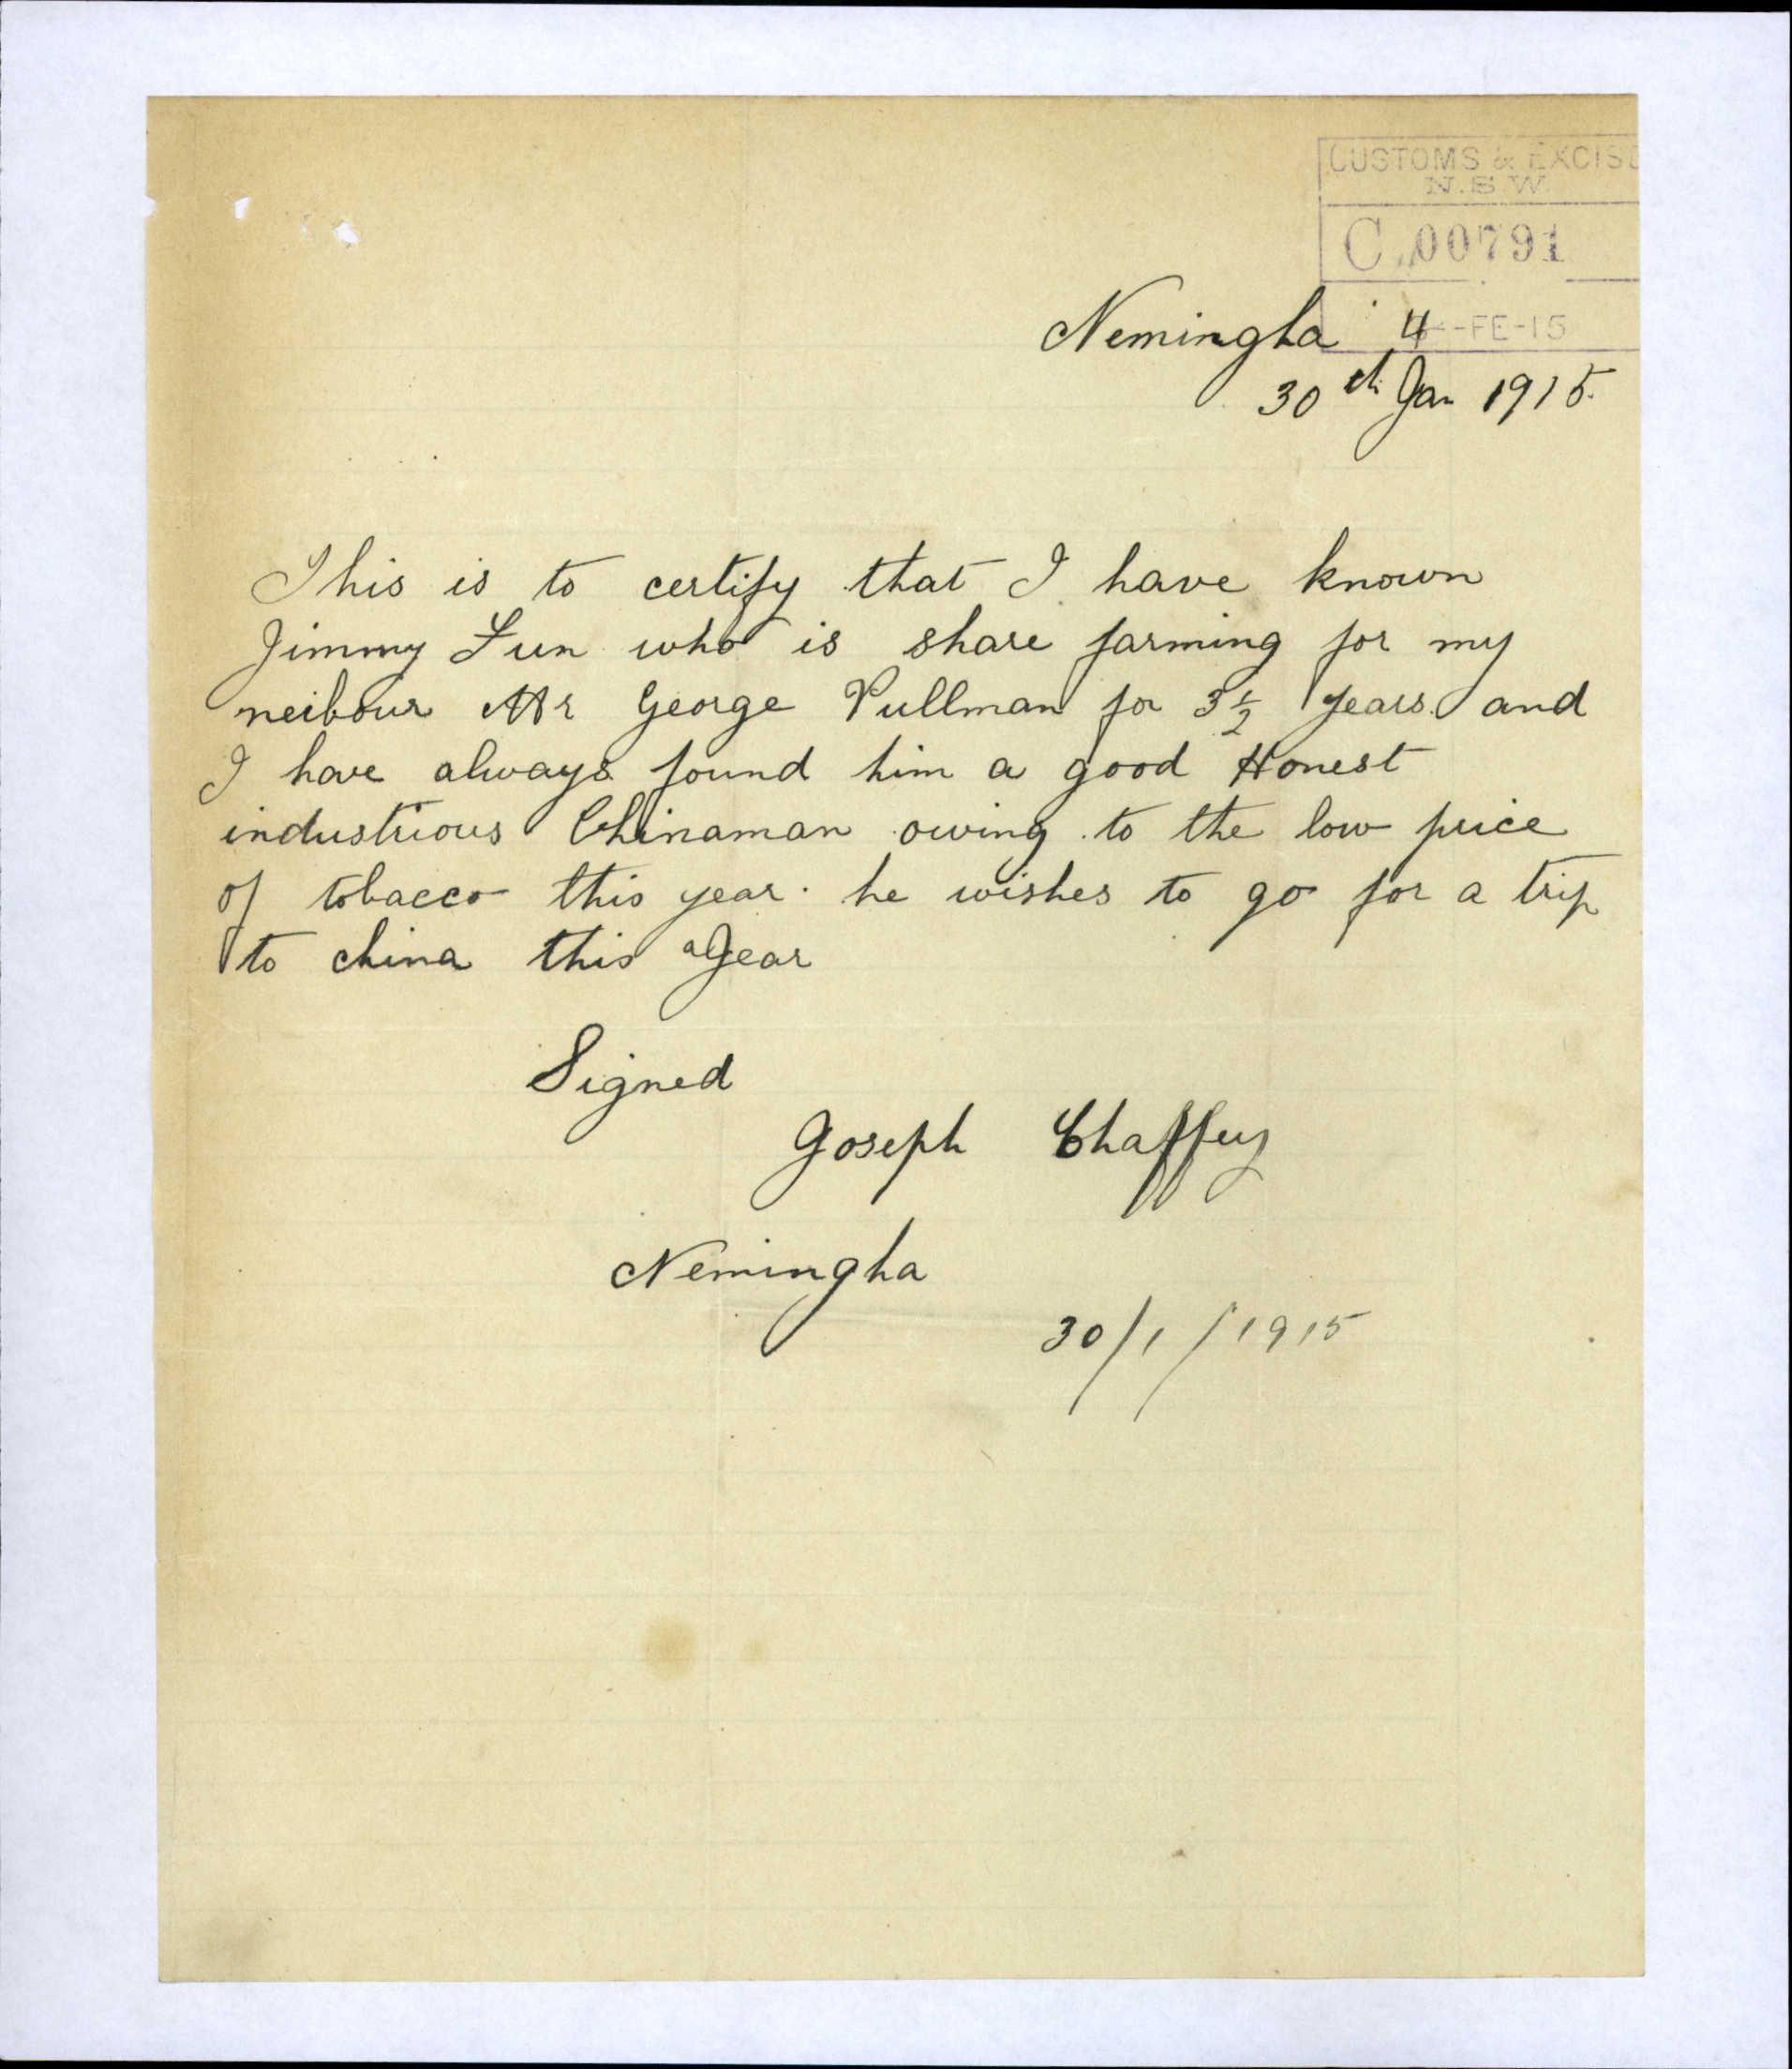 CUSTOMS & EXCISE
N.S.W.
C 00791
4 -FE-15
Nemingha
30th Jan 1915.
This is to certify that I have known
Jimmy Lun who is share farming for my
neibour Mr George Pullman for 3½ years and
I have always found him a good Honest
industrious Chinaman owing to the low price
of tobacco this year he wishes to go for a trip
to china this Year
Signed
Joseph Chaffey
Nemingha
30/1/1915